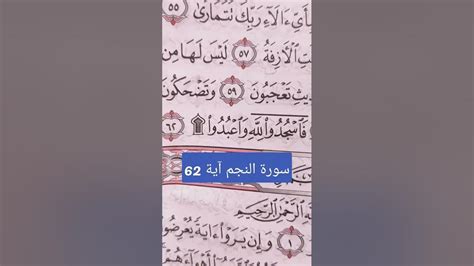 ءَالَآءِ رَبِّكَ تَتَمَارَىٰ ٥٥
ٱلۡأَزِفَةُ ٥٧ لَيۡسَ لَهَا مِن
تَعۡجَبُونَ ٥٩ وَتَضۡحَكُونَ
فَٱسۡجُدُواْۤ لِلَّهِۤ وَٱعۡبُدُواْ ۩ ٦٢
سورة النجم آية 62
ٱلرَّحۡمَٰنِ ٱلرَّحِيمِ
١ وَإِن يَرَوۡاْ ءَايَةٗ يُعۡرِضُواْ
أَهۡوَآءَهُمۡ